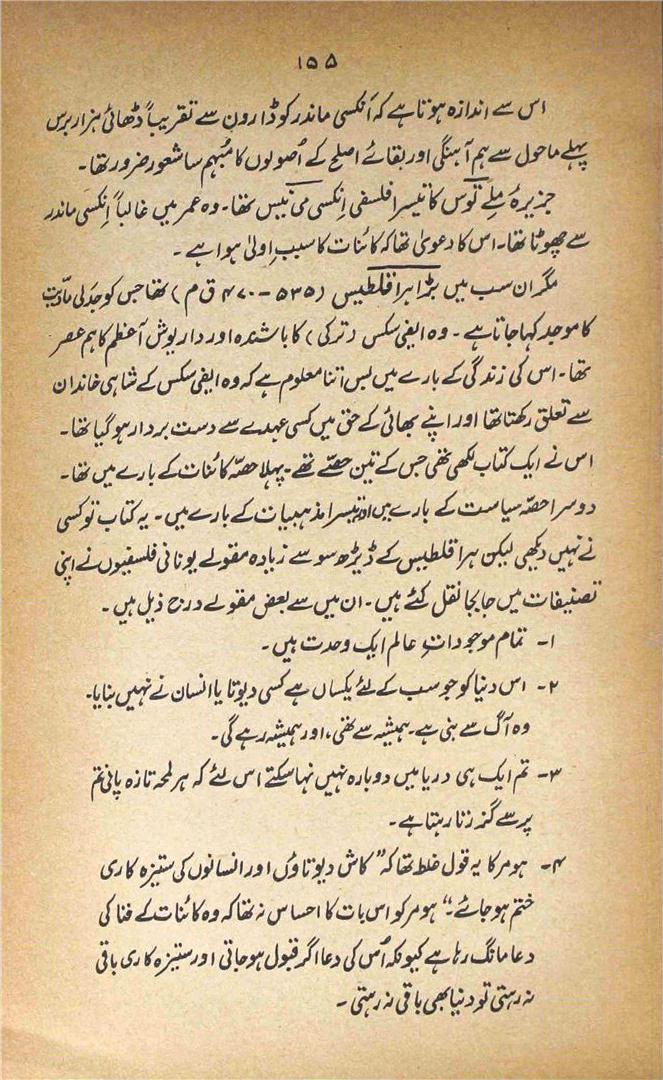 ۱۵۵
اس سے اندازہ ہوتا ہے کہ اَنکسی ماندر کو ڈارون سے تقریباً ڈھائی ہزار برس
پہلے ماحول سے ہم آہنگی اور بقائے اصلح کے اُصولوں کا مُبہم سا شعور ضرور تھا۔
جزیرۂ ملے توس کا تیسرا فلسفی اِنکسی می نیس تھا۔ وہ عمر میں غالباً اَنکسی ماندر
سے چھوٹا تھا۔ اس کا دعویٰ تھا کہ کائنات کا سببِ اولیٰ ہوا ہے۔
مگر ان سب میں بڑا ہراقلطیس (۵۳۵ - ۴۷۰ ق م) تھا جس کو جدلی مادّیت
کا موجد کہا جاتا ہے۔ وہ ایفی سکس (ترکی) کا باشندہ اور داریوش اعظم کا ہم عصر
تھا۔ اس کی زندگی کے بارے میں بس اتنا معلوم ہے کہ وہ ایفی سکس کے شاہی خاندان
سے تعلق رکھتا تھا اور اپنے بھائی کے حق میں کسی عہدے سے دست بردار ہو گیا تھا۔
اس نے ایک کتاب لکھی تھی جس کے تین حصّے تھے۔ پہلا حصّہ کائنات کے بارے میں تھا۔
دوسرا حصّہ سیاست کے بارے میں اور تیسرا مذہبیات کے بارے میں۔ یہ کتاب تو کسی
نے نہیں دیکھی لیکن ہراقلطیس کے ڈیڑھ سو سے زیادہ مقولے یونانی فلسفیوں نے اپنی
تصنیفات میں جا بجا نقل کئے ہیں۔ ان میں سے بعض مقولے درج ذیل ہیں۔
۱۔ تمام موجوداتِ عالم ایک وحدت ہیں۔
۲۔ اس دنیا کو جو سب کے لئے یکساں ہے کسی دیوتا یا انسان نے نہیں بنایا۔
وہ آگ سے بنی ہے۔ ہمیشہ سے تھی، اور ہمیشہ رہے گی۔
۳۔ تم ایک ہی دریا میں دوبارہ نہیں نہا سکتے اس لئے کہ ہر لمحہ تازہ پانی تم
پر سے گزرتا رہتا ہے۔
۴۔ ہومر کا یہ قول غلط تھا کہ "کاش دیوتاؤں اور انسانوں کی ستیزہ کاری
ختم ہو جائے۔" ہومر کو اس بات کا احساس نہ تھا کہ وہ کائنات کے فنا کی
دعا مانگ رہا ہے کیونکہ اُس کی دعا اگر قبول ہو جاتی اور ستیزہ کاری باقی
نہ رہتی تو دنیا بھی باقی نہ رہتی۔